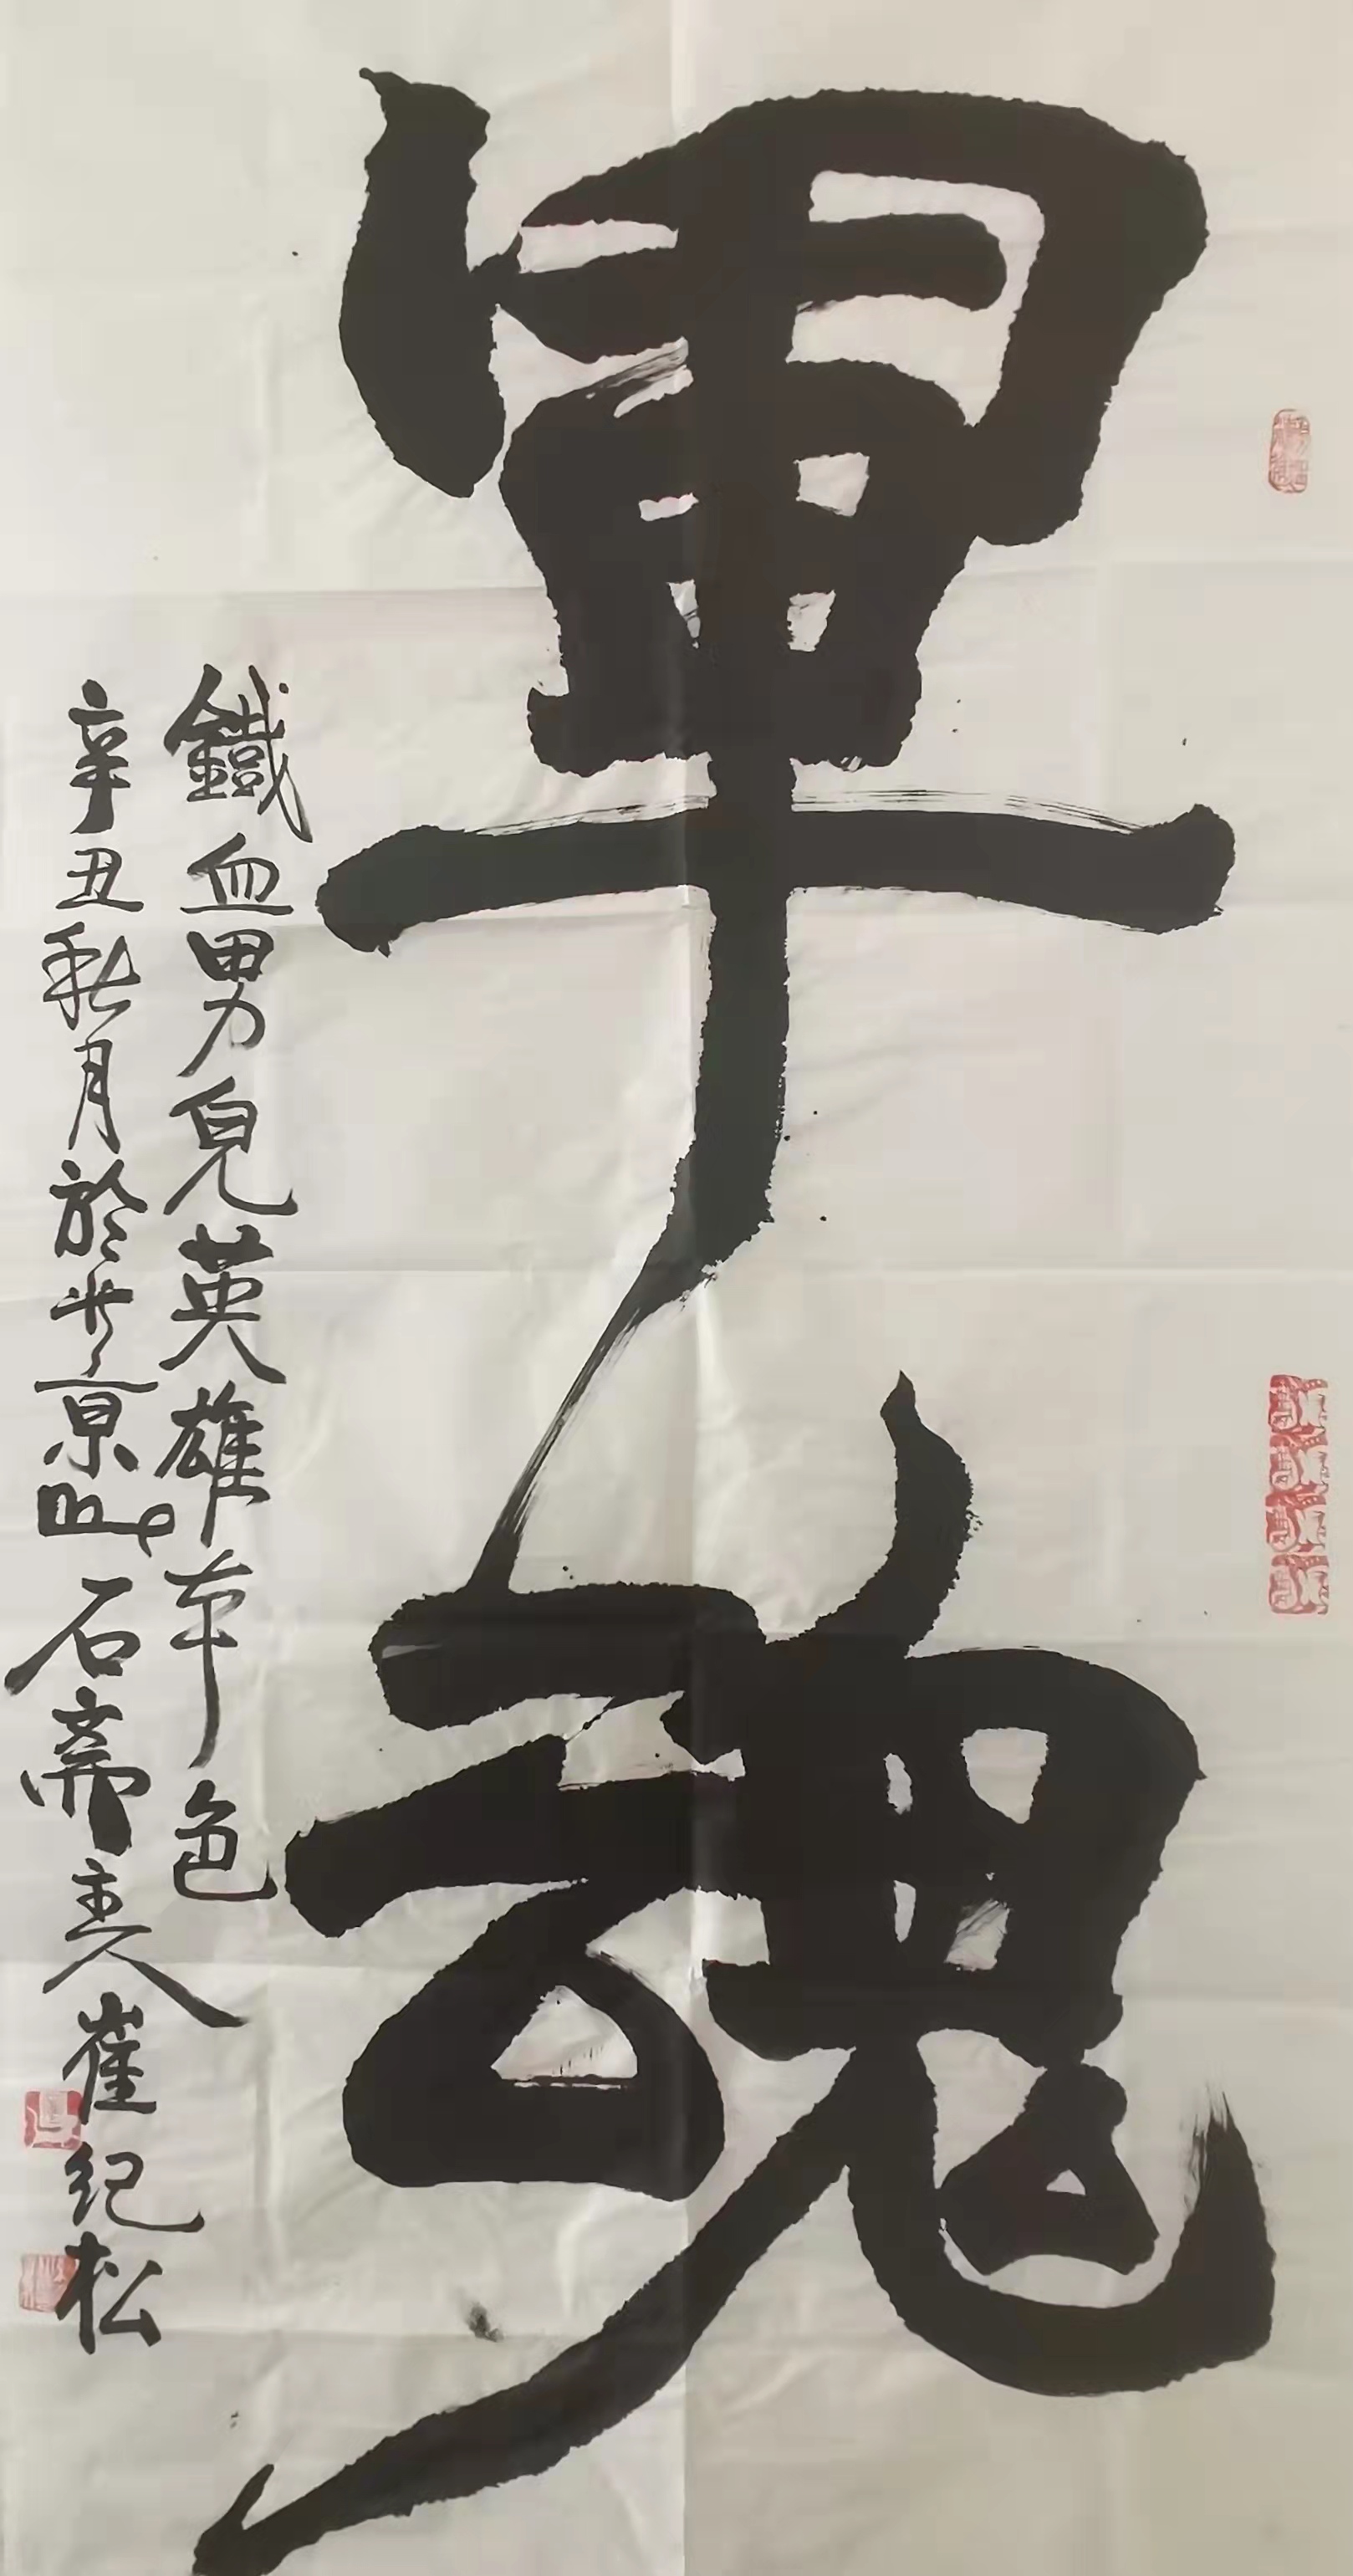 軍魂
鐵血男兒英雄本色
辛丑秋月於北京臥石齋主人崔纪松